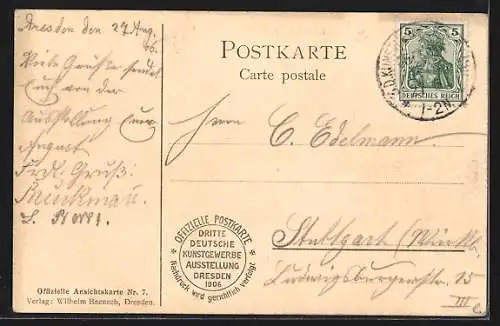 Dresden den 27 Aug.
06.
Viele Grüße sendet
Euch von der
Ausstellung Euer
August
Frdl. Gruß:
POSTKARTE
Carte postale
5 5
DEUTSCHES REICH
1-2N.
Herrn C. Edelmann.
Stuttgart (Württ.
Ludwigsburgerstr. 15
III
* OFFIZIELLE POSTKARTE *
DRITTE
DEUTSCHE
KUNSTGEWERBE
AUSSTELLUNG
DRESDEN
1906
Nachdruck wird gerichtlich verfolgt
Offizielle Ansichtskarte Nr. 7.
Verlag: Wilhelm Baensch, Dresden.